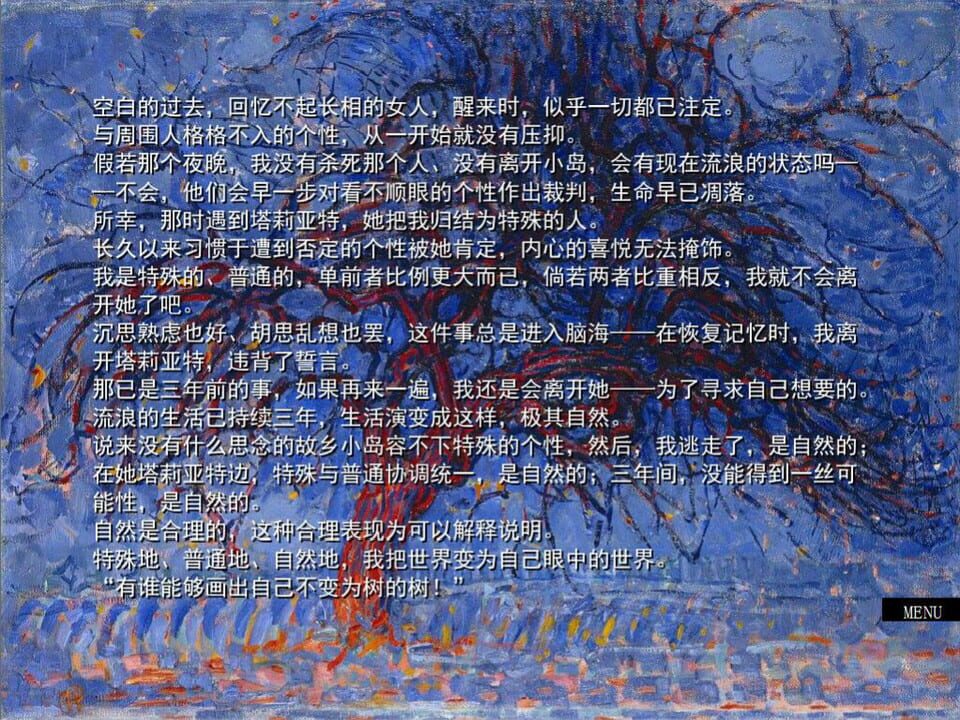 空白的过去，回忆不起长相的女人，醒来时，似乎一切都已注定。
与周围人格格不入的个性，从一开始就没有压抑。
假若那个夜晚，我没有杀死那个人、没有离开小岛，会有现在流浪的状态吗—
—不会，他们会早一步对看不顺眼的个性作出裁判，生命早已凋落。
所幸，那时遇到塔莉亚特，她把我归结为特殊的人。
长久以来习惯于遭到否定的个性被她肯定，内心的喜悦无法掩饰。
我是特殊的、普通的，单前者比例更大而已，倘若两者比重相反，我就不会离
开她了吧。
沉思熟虑也好、胡思乱想也罢，这件事总是进入脑海——在恢复记忆时，我离
开塔莉亚特，违背了誓言。
那已是三年前的事，如果再来一遍，我还是会离开她——为了寻求自己想要的。
流浪的生活已持续三年，生活演变成这样，极其自然。
说来没有什么思念的故乡小岛容不下特殊的个性，然后，我逃走了，是自然的；
在她塔莉亚特边，特殊与普通协调统一，是自然的；三年间，没能得到一丝可
能性，是自然的。
自然是合理的，这种合理表现为可以解释说明。
特殊地、普通地、自然地，我把世界变为自己眼中的世界。
“有谁能够画出自己不变为树的树！”
MENU